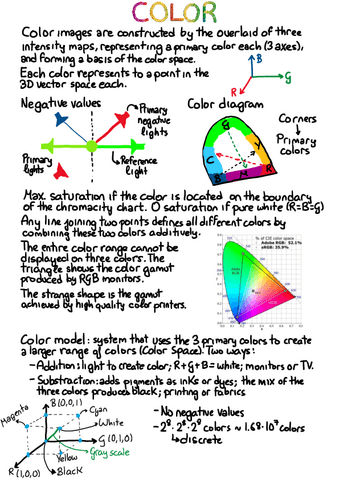 COLOR
Color images are constructed by the overload of three
intensity maps, representing a primary color each (3 axes),
and forming a basis of the color space.
Each color represents to a point in the
3D vector space each.
B
G
R
Negative values
Primary
negative
lights
Primary
lights
Reference
light
Color diagram
G
C
Y
B
M
R
Corners
Primary
colors
Max. saturation if the color is located on the boundary
of the chromacity chart. 0 saturation if pure white (R=B=G)
Any line joining two points defines all different colors by
combining these two colors additively.
The entire color range cannot be
displayed on three colors. The
triangle shows the color gamut
produced by RGB monitors.
The strange shape is the gamut
achieved by high quality color printers.
% of CIE color space
Adobe RGB: 52,1%
sRGB: 35,9%
Color model: system that uses the 3 primary colors to create
a larger range of colors (Color Space). Two ways:
- Addition: light to create color; R+G+B=white; monitors or TV.
- Substraction: adds pigments as inks or dyes; the mix of the
three colors produces black; printing or fabrics
B(0,0,1)
Magenta
Cyan
White
G (0,1,0)
Gray scale
Yellow
R (1,0,0)
Black
- No negative values
- 2⁸·2⁸·2⁸ colors ~ 1.68·10⁷ colors
↳ discrete